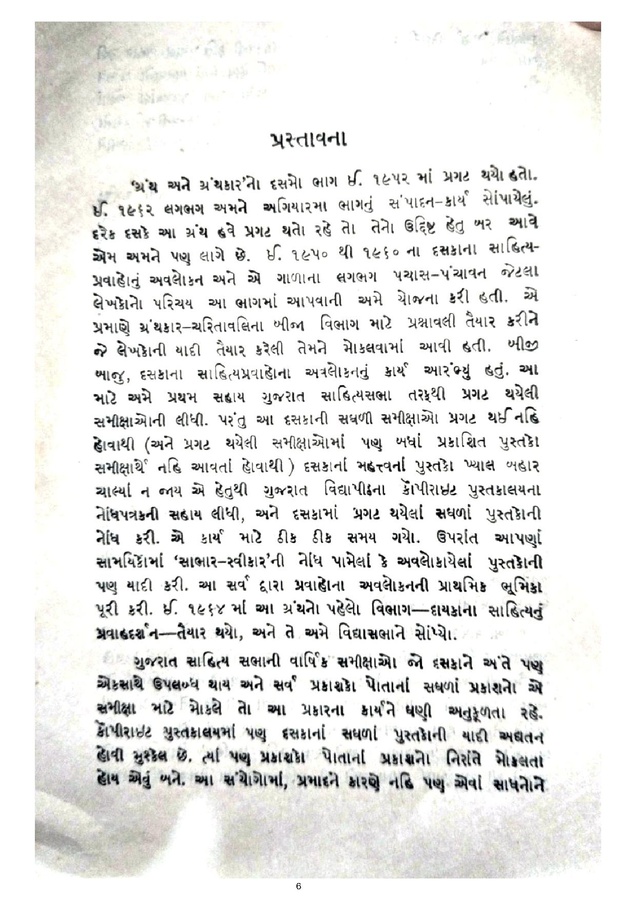 પ્રસ્તાવના
‘ગ્રંથ અને ગ્રંથકાર’નો દસમો ભાગ ઈ. ૧૯૫૨ માં પ્રગટ થયો હતો.
ઈ. ૧૯૬૨ લગભગ અમને અગિયારમા ભાગનું સંપાદન-કાર્ય સોંપાયેલું.
દરેક દસકે આ ગ્રંથ હવે પ્રગટ થતો રહે તો તેનો ઉદ્દિષ્ટ હેતુ બર આવે
એમ અમને પણ લાગે છે. ઈ. ૧૯૫૦ થી ૧૯૬૦ ના દસકાના સાહિત્ય-
પ્રવાહોનું અવલોકન અને એ ગાળાના લગભગ પચાસ-પંચાવન જેટલા
લેખકોનો પરિચય આ ભાગમાં આપવાની અમે યોજના કરી હતી. એ
પ્રમાણે ગ્રંથકાર-ચરિતાવલિના બીજા વિભાગ માટે પ્રશ્નાવલી તૈયાર કરીને
જે લેખકોની યાદી તૈયાર કરેલી તેમને મોકલવામાં આવી હતી. બીજી
બાજુ, દસકાના સાહિત્યપ્રવાહોના અવલોકનનું કાર્ય આરંભ્યું હતું. આ
માટે અમે પ્રથમ સહાય ગુજરાત સાહિત્યસભા તરફથી પ્રગટ થયેલી
સમીક્ષાઓની લીધી. પરંતુ આ દસકાની સઘળી સમીક્ષાઓ પ્રગટ થઈ નહિ
હોવાથી (અને પ્રગટ થયેલી સમીક્ષાઓમાં પણ બધાં પ્રકાશિત પુસ્તકો
સમીક્ષાર્થે નહિ આવતાં હોવાથી) દસકાનાં મહત્ત્વનાં પુસ્તકો ખ્યાલ બહાર
ચાલ્યાં ન જાય એ હેતુથી ગુજરાત વિદ્યાપીઠના કૉપીરાઇટ પુસ્તકાલયના
નોંધપત્રકની સહાય લીધી, અને દસકામાં પ્રગટ થયેલાં સઘળાં પુસ્તકોની
નોંધ કરી. એ કાર્ય માટે ઠીક ઠીક સમય ગયો. ઉપરાંત આપણાં
સામયિકોમાં ‘સાભાર-સ્વીકાર’ની નોંધ પામેલાં કે અવલોકાયેલાં પુસ્તકોની
પણ યાદી કરી. આ સર્વ દ્વારા પ્રવાહોના અવલોકનની પ્રાથમિક ભૂમિકા
પૂરી કરી. ઈ. ૧૯૬૪ માં આ ગ્રંથનો પહેલો વિભાગ—દાયકાના સાહિત્યનું
પ્રવાહદર્શન—તૈયાર થયો, અને તે અમે વિદ્યાસભાને સોંપ્યો.
ગુજરાત સાહિત્ય સભાની વાર્ષિક સમીક્ષાઓ જો દસકાને અંતે પણ
એકસાથે ઉપલબ્ધ થાય અને સર્વ પ્રકાશકો પોતાનાં સઘળાં પ્રકાશનો એ
સમીક્ષા માટે મોકલે તો આ પ્રકારના કાર્યને ઘણી અનુકૂળતા રહે.
કૉપીરાઇટ પુસ્તકાલયમાં પણ દસકાનાં સઘળાં પુસ્તકોની યાદી અદ્યતન
હોવી મુશ્કેલ છે. ત્યાં પણ પ્રકાશકો પોતાનાં પ્રકાશનો નિરાંતે મોકલતા
હોય એવું બને. આ સંયોગોમાં, પ્રમાદને કારણે નહિ પણ એવાં સાધનોને
6